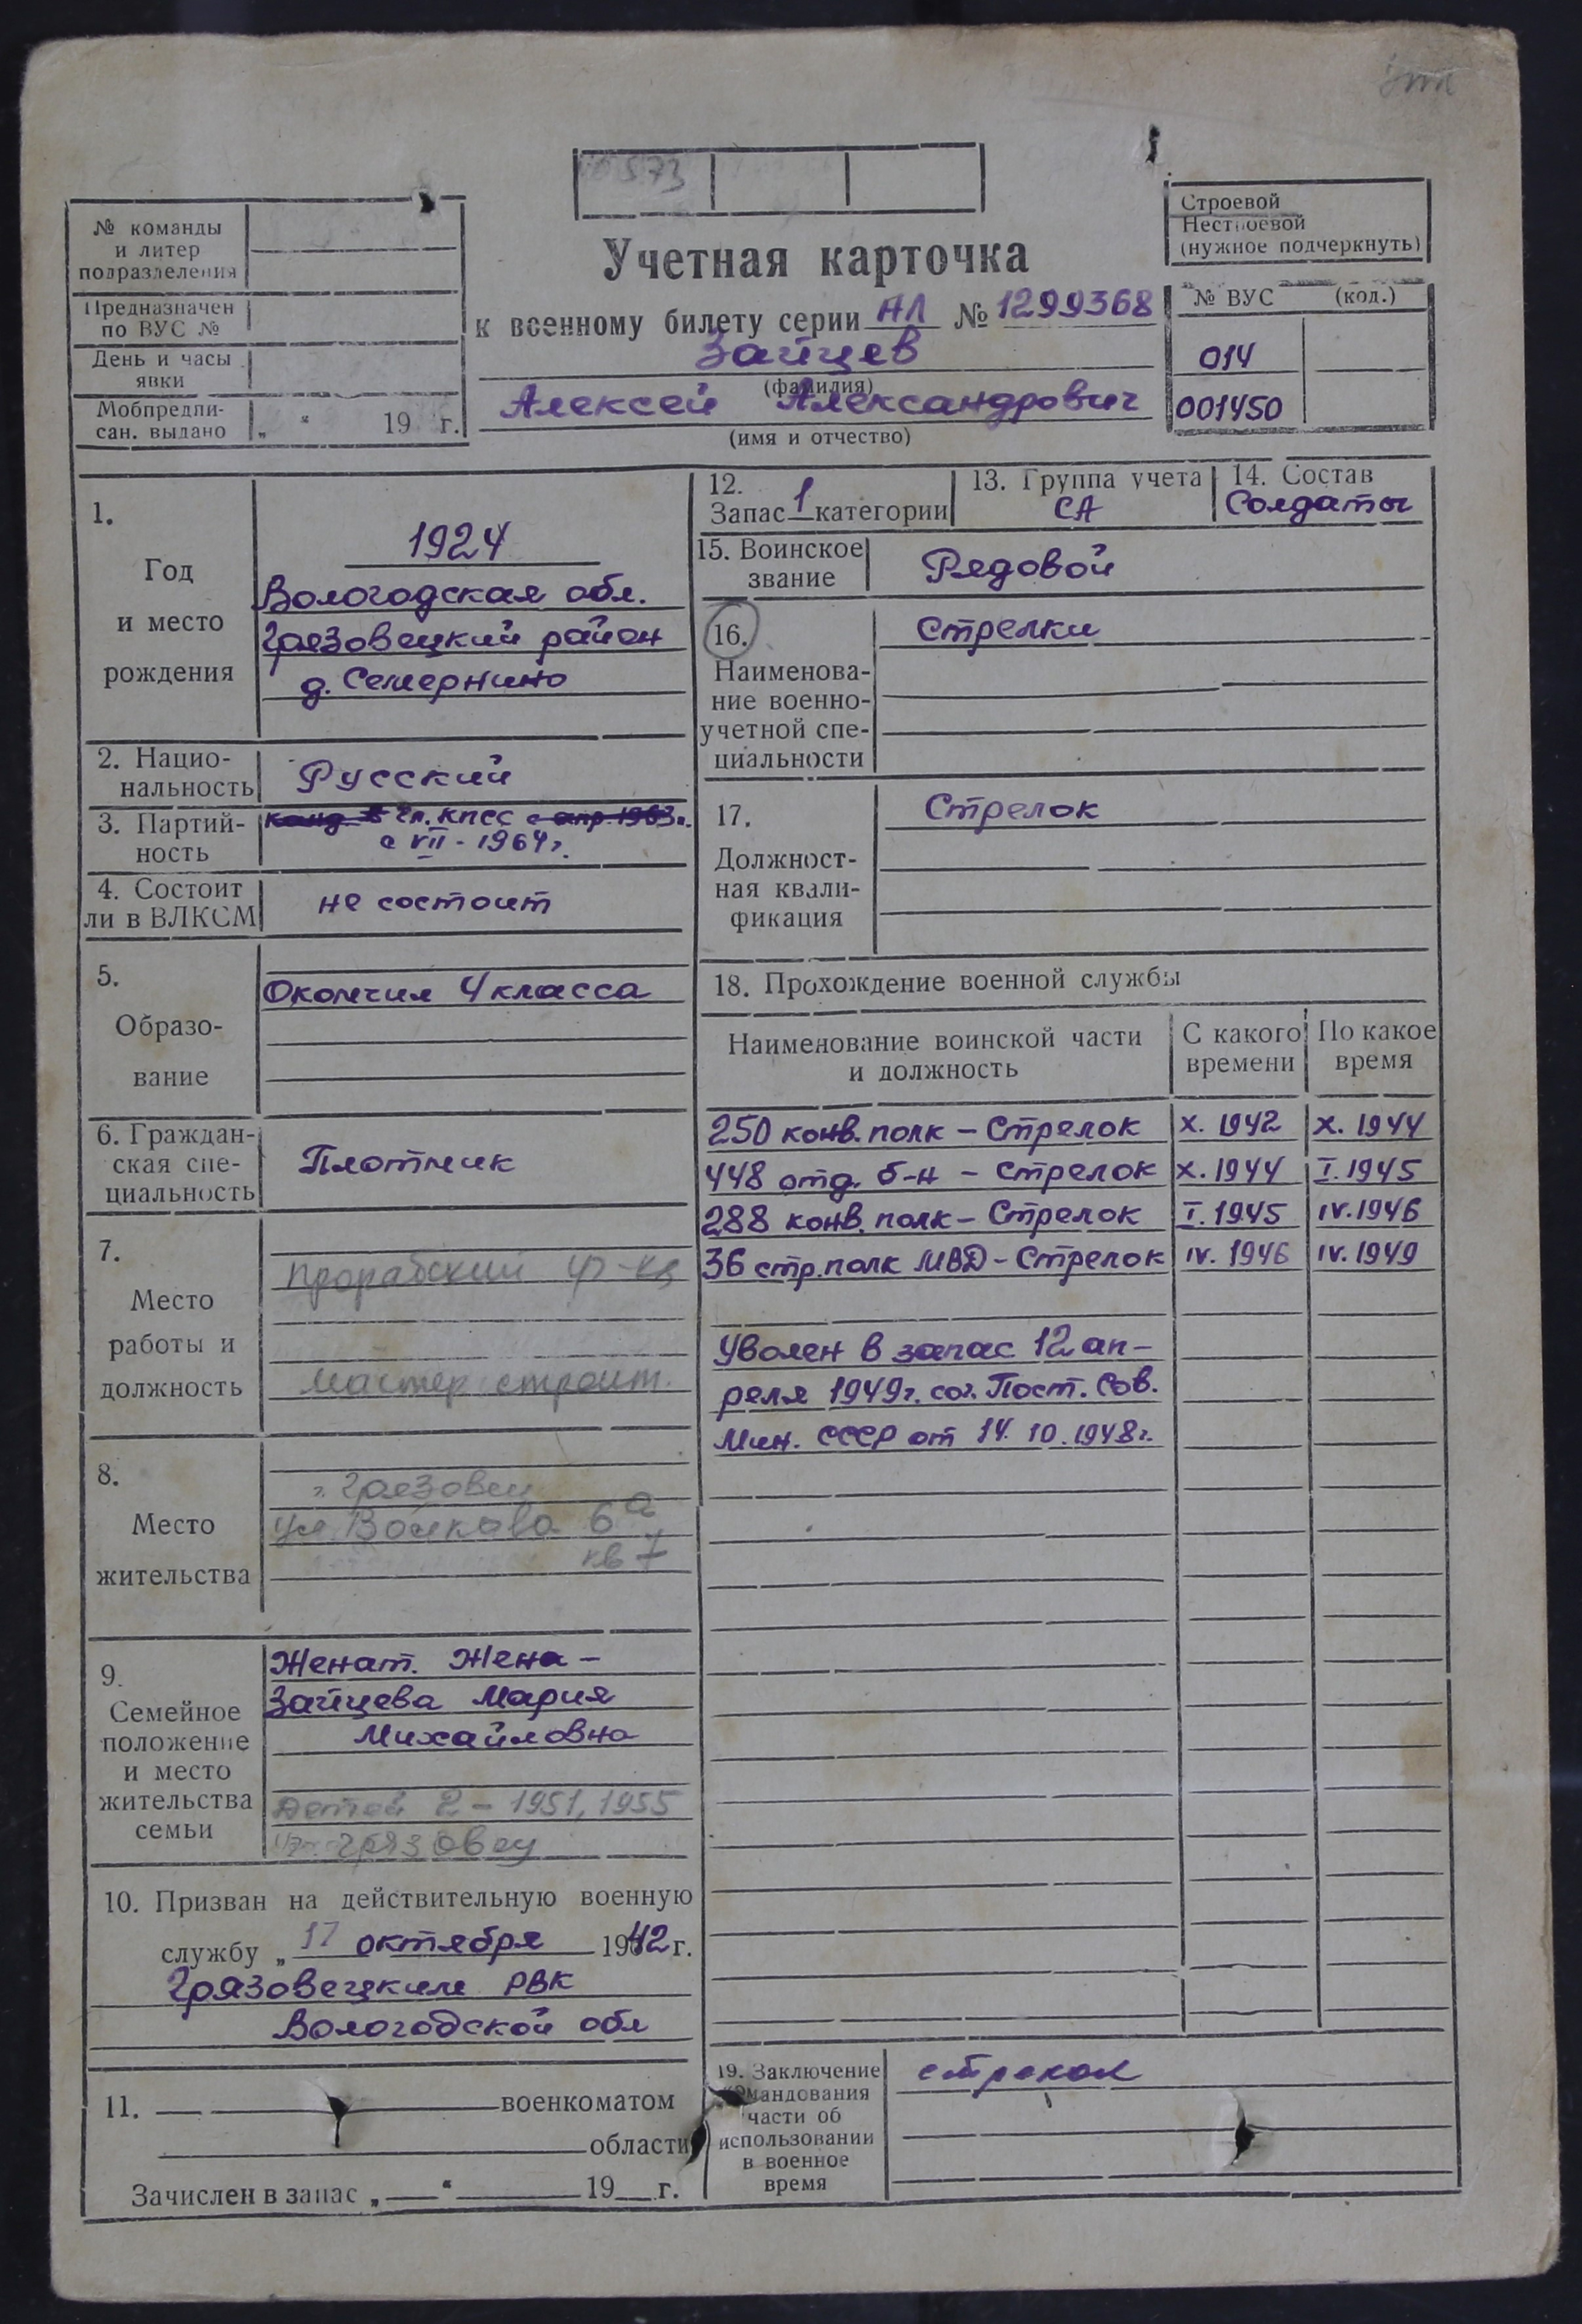 573
№ команды
и литер
подразделения
Предназначен
по ВУС №
День и часы
явки
Мобпредпи-
сан. выдано „ “ 19 г.
Учетная карточка
к военному билету серии АЛ № 1299368
Зайцев
(фамилия)
Алексей Александрович
(имя и отчество)
Строевой
Нестроевой
(нужное подчеркнуть)
№ ВУС (код.)
014
001450
1.
Год
и место
рождения
1924
Вологодская обл.
Грязовецкий район
д. Семернино
2. Нацио-
нальность
Русский
3. Партий-
ность
канд. в чл. КПСС с апр. 1963г.
с VII - 1964г.
4. Состоит
ли в ВЛКСМ
не состоит
5.
Образо-
вание
Окончил 4 класса
6. Граждан-
ская спе-
циальность
Плотник
7.
Место
работы и
должность
прорабский уч-к
мастер строит.
8.
Место
жительства
г. Грязовец
ул. Войкова 6а
кв 7
9.
Семейное
положение
и место
жительства
семьи
Женат. Жена –
Зайцева Мария
Михайловна
Детей 2 – 1951, 1955
Грязовец
10. Призван на действительную военную
службу „ 17 октября 1942 г.
Грязовецким РВК
Вологодской обл
11. военкоматом
области
Зачислен в запас „ “ 19 г.
12.
Запас 1 категории
13. Группа учета
СА
14. Состав
Солдаты
15. Воинское
звание
Рядовой
16.
Наименова-
ние военно-
учетной спе-
циальности
Стрелки
17.
Должност-
ная квали-
фикация
Стрелок
18. Прохождение военной службы
Наименование воинской части
и должность
С какого
времени
По какое
время
250 конв. полк – Стрелок X. 1942 X. 1944
448 отд. б-н – Стрелок X. 1944 I. 1945
288 конв. полк – Стрелок I. 1945 IV. 1946
36 стр. полк МВД – Стрелок IV. 1946 IV. 1949
Уволен в запас 12 ап-
реля 1949г. сог. Пост. Сов.
Мин. СССР от 14. 10. 1948г.
19. Заключение
командования
части об
использовании
в военное
время
стрелок